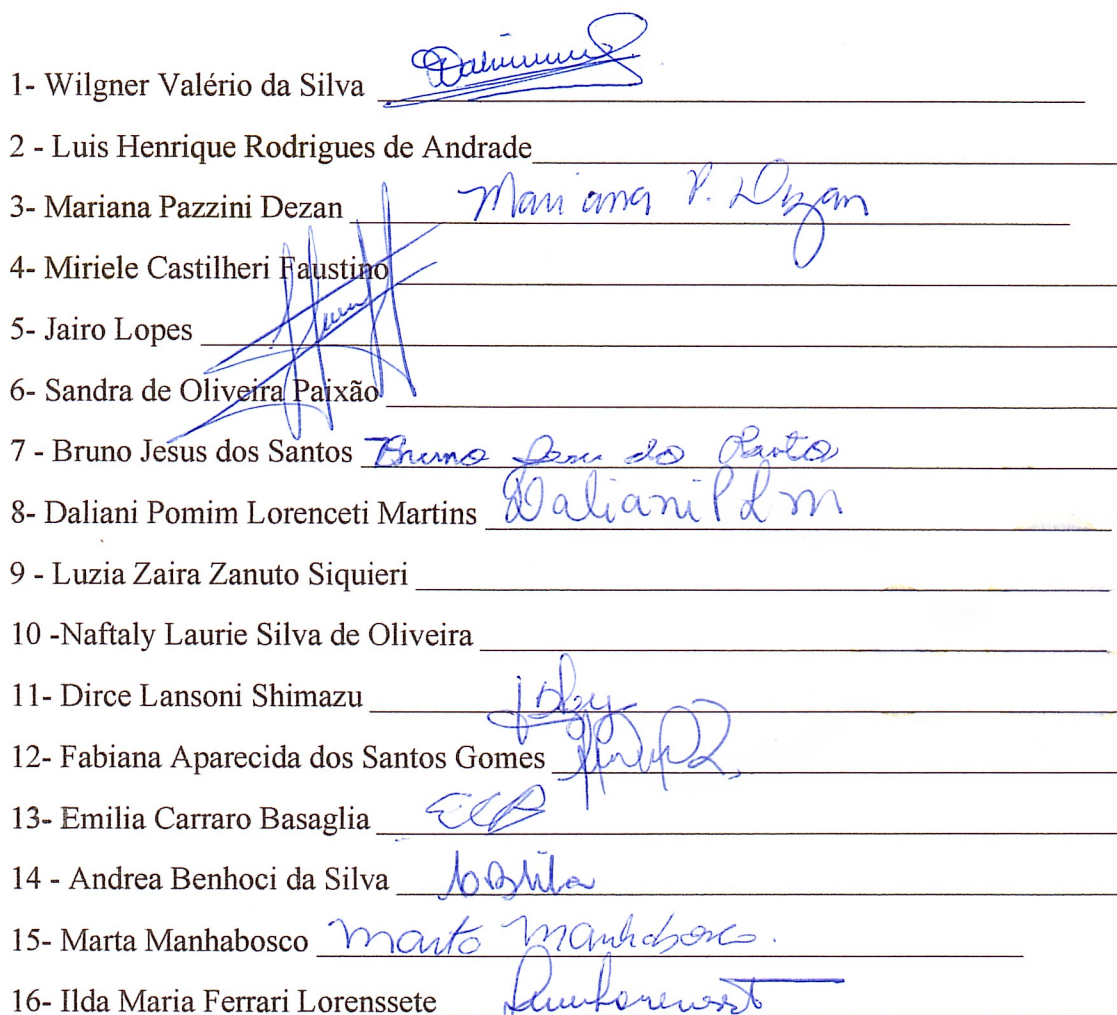 1- Wilgner Valério da Silva
2 - Luis Henrique Rodrigues de Andrade
3- Mariana Pazzini Dezan Mariana P. Dezan
4- Miriele Castilheri Faustino
5- Jairo Lopes
6- Sandra de Oliveira Paixão
7 - Bruno Jesus dos Santos Bruno Jesu do Santos
8- Daliani Pomim Lorenceti Martins Daliani P L M
9 - Luzia Zaira Zanuto Siquieri
10 -Naftaly Laurie Silva de Oliveira
11- Dirce Lansoni Shimazu
12- Fabiana Aparecida dos Santos Gomes
13- Emilia Carraro Basaglia ECB
14 - Andrea Benhoci da Silva
15- Marta Manhabosco Marta Manhabosco.
16- Ilda Maria Ferrari Lorenssete